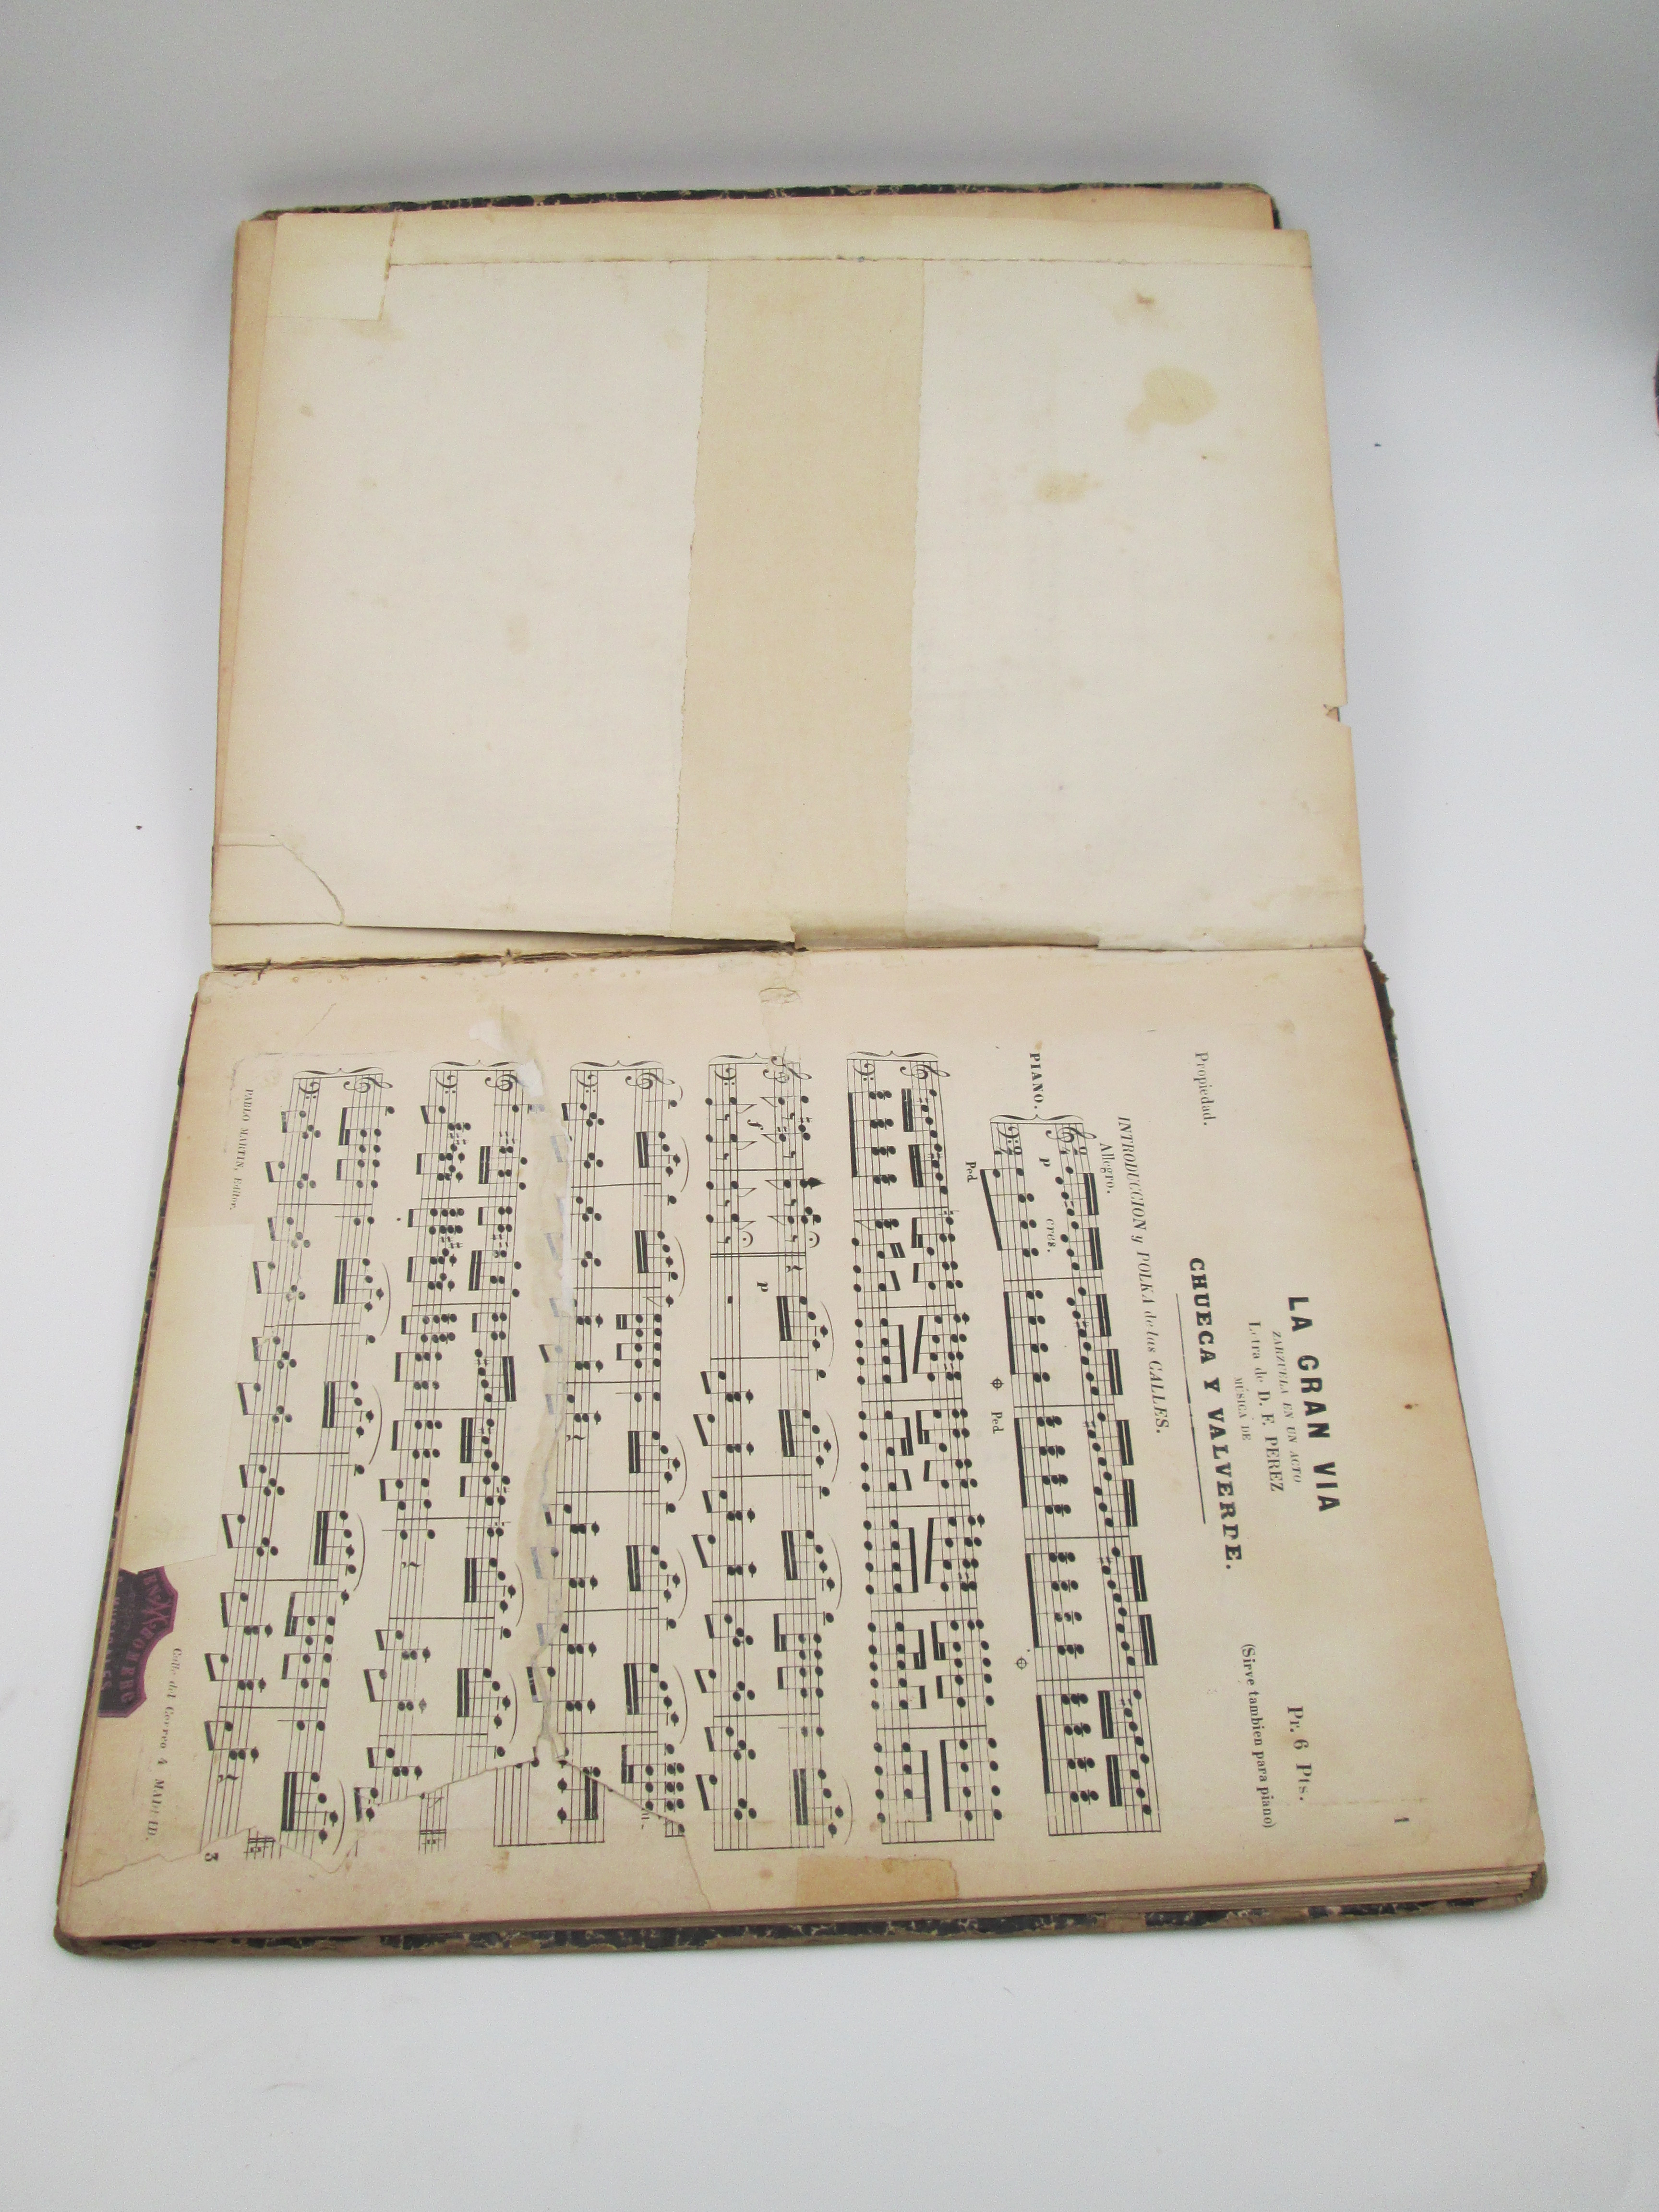 1
LA GRAN VIA
ZARZUELA EN UN ACTO
Pr. 6 Pts.
Letra de D. F. PEREZ
MÚSICA DE
(Sirve tambien para piano)
Propiedad.
CHUECA Y VALVERDE.
INTRODUCCION y POLKA de las CALLES.
Allegro.
PIANO.
p
cres.
Ped
Ped
f
p
3
PABLO MARTIN, Editor.
Calle del Correo 4 MADRID.
ROMERO